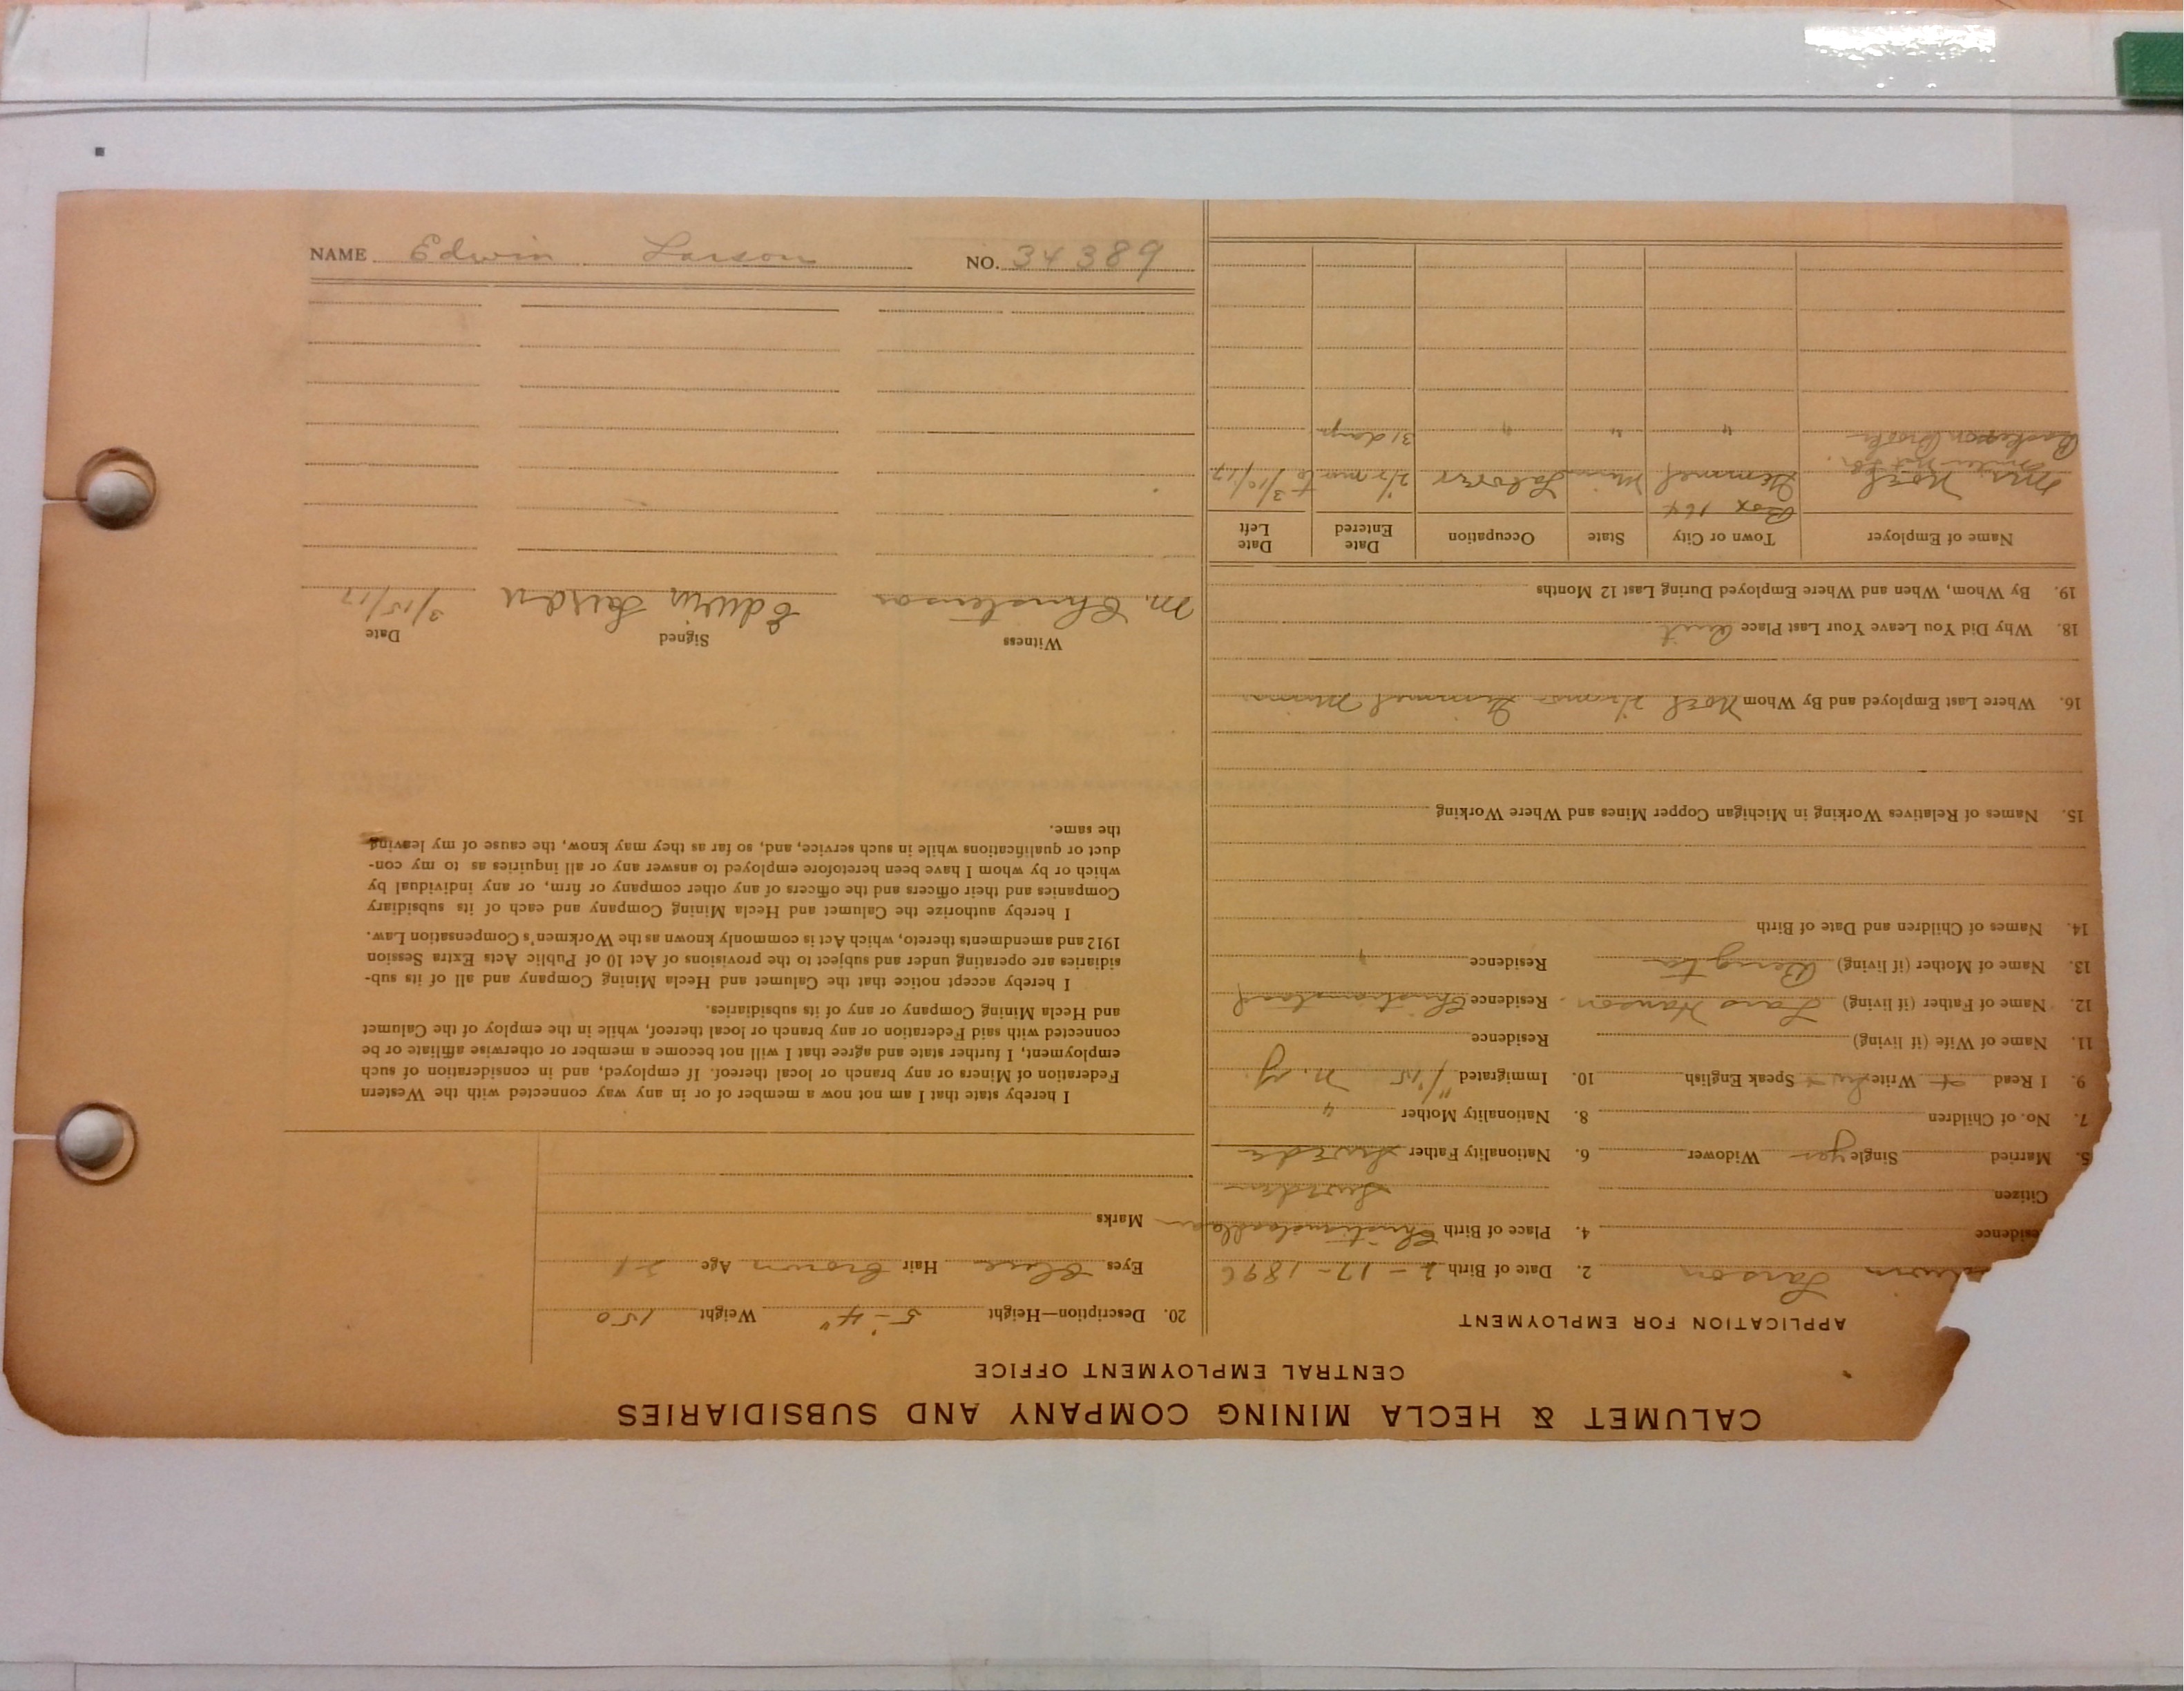 CALUMET & HECLA MINING COMPANY AND SUBSIDIARIES
CENTRAL EMPLOYMENT OFFICE
APPLICATION FOR EMPLOYMENT
Larson 2. Date of Birth 2-17-1896
4. Place of Birth
Citizen Sweden
5. Married Single yes Widower 6. Nationality Father Swede
7. No. of Children 8. Nationality Mother "
9. I Read Write Speak English 10. Immigrated N. Y.
11. Name of Wife (if living) Residence
12. Name of Father (if living) Lars Hanson Residence
13. Name of Mother (if living) Bengta Residence "
14. Names of Children and Date of Birth
15. Names of Relatives Working in Michigan Copper Mines and Where Working
16. Where Last Employed and By Whom
18. Why Did You Leave Your Last Place Quit
19. By Whom, When and Where Employed During Last 12 Months
Name of Employer Town or City State Occupation Date Entered Date Left
Box 164
Minn Laborer 3/10/17
" " " 31 days
20. Description—Height 5'-4" Weight 150
Eyes Blue Hair Brown Age 21
Marks
I hereby state that I am not now a member of or in any way connected with the Western
Federation of Miners or any branch or local thereof. If employed, and in consideration of such
employment, I further state and agree that I will not become a member or otherwise affiliate or be
connected with said Federation or any branch or local thereof, while in the employ of the Calumet
and Hecla Mining Company or any of its subsidiaries.
I hereby accept notice that the Calumet and Hecla Mining Company and all of its sub-
sidiaries are operating under and subject to the provisions of Act 10 of Public Acts Extra Session
1912 and amendments thereto, which Act is commonly known as the Workmen's Compensation Law.
I hereby authorize the Calumet and Hecla Mining Company and each of its subsidiary
Companies and their officers and the officers of any other company or firm, or any individual by
which or by whom I have been heretofore employed to answer any or all inquiries as to my con-
duct or qualifications while in such service, and, so far as they may know, the cause of my leaving
the same.
Witness Signed Date
M. Christensen Edwin Larson 3/15/17
NAME Edwin Larson NO. 34389